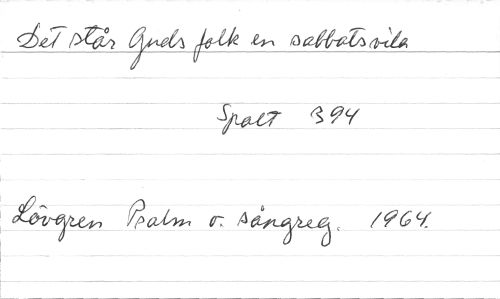 Det står Guds folk en sabbatsvila
Spalt 394
Lövgren Psalm o. sångreg. 1964.